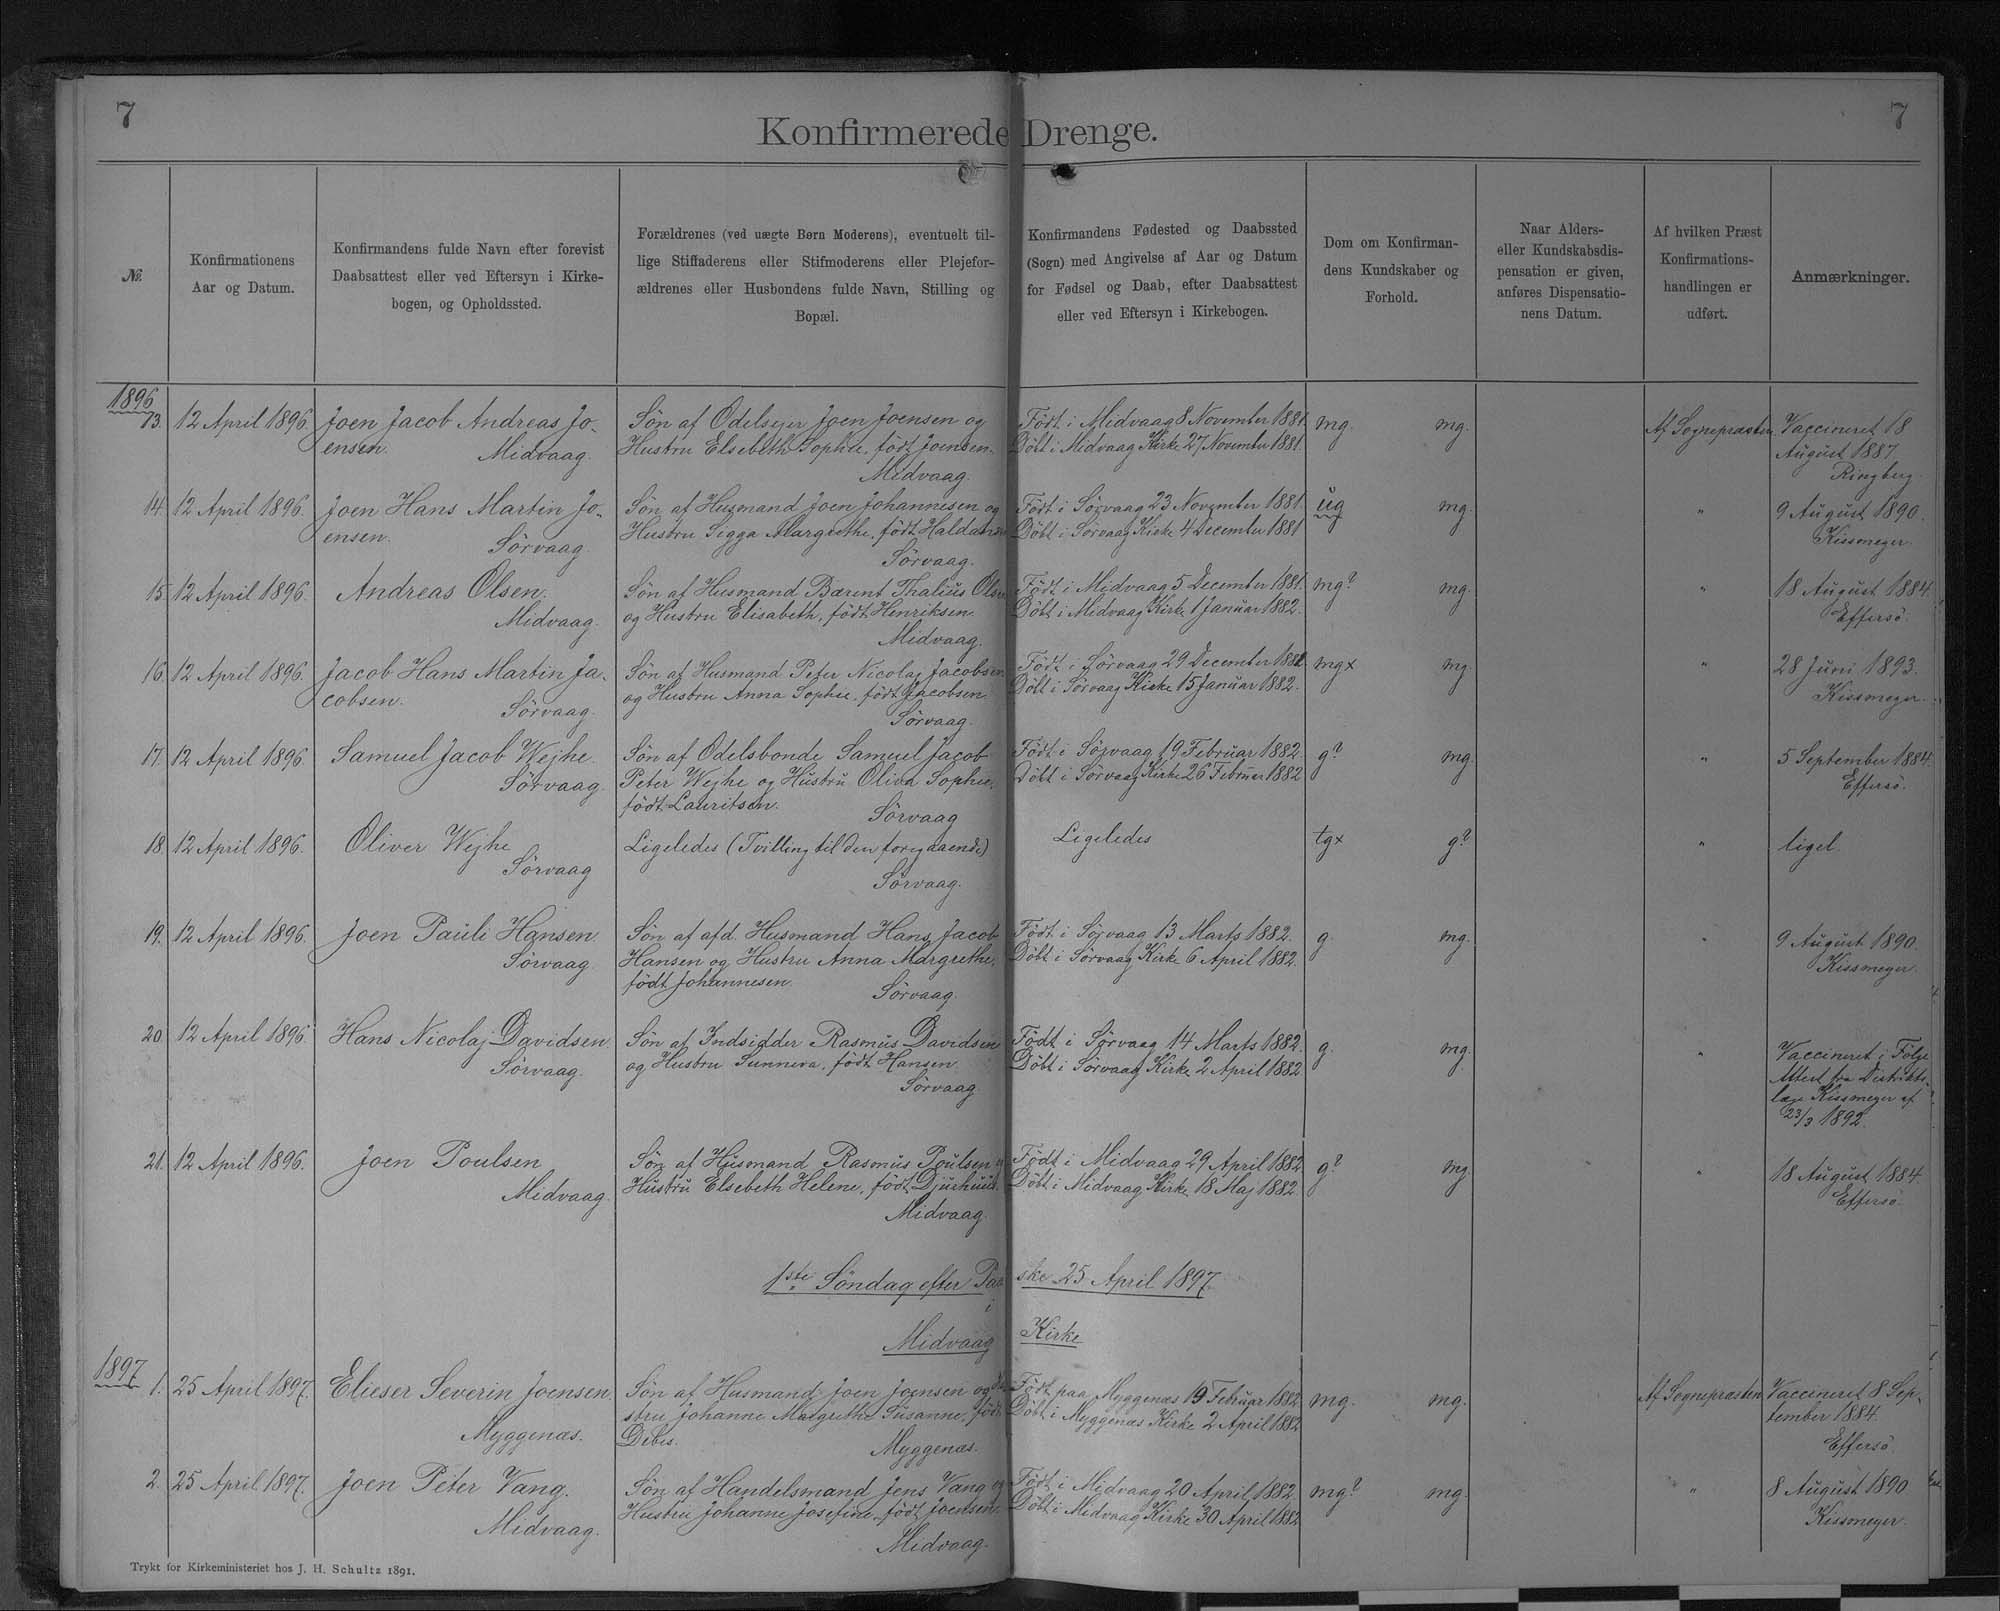 7
7
Konfirmerede Drenge.
№.
Konfirmationens
Aar og Datum.
Konfirmandens fulde Navn efter forevist
Daabsattest eller ved Eftersyn i Kirke-
bogen, og Opholdssted.
Forældrenes (ved uægte Børn Moderens), eventuelt til-
lige Stiffaderens eller Stifmoderens eller Plejefor-
ældrenes eller Husbondens fulde Navn, Stilling og
Bopæl.
Konfirmandens Fødested og Daabssted
(Sogn) med Angivelse af Aar og Datum
for Fødsel og Daab, efter Daabsattest
eller ved Eftersyn i Kirkebogen.
Dom om Konfirman-
dens Kundskaber og
Forhold.
Naar Alders-
eller Kundskabsdis-
pensation er given,
anføres Dispensatio-
nens Datum.
Af hvilken Præst
Konfirmations-
handlingen er
udført.
Anmærkninger.
1896
13. 12 April 1896.
Joen Jacob Andreas Jo-
ensen.
Midvaag.
Søn af Odelsejer Joen Joensen og
Hustru Elsebeth Sophie, født Joensen.
Midvaag.
Født i Midvaag 8 November 1881.
Døbt i Midvaag Kirke 27 November 1881.
mg. mg.
Af Sognepræsten.
Vaccineret 18
August 1887.
Ringberg.
14. 12 April 1896.
Joen Hans Martin Jo-
ensen.
Sörvaag.
Søn af Husmand Joen Johannesen og
Hustru Sigga Margrethe, født Haldansen
Sörvaag.
Født i Sörvaag 23 November 1881.
Døbt i Sörvaag Kirke 4 December 1881
ug mg.
"
9 August 1890.
Kissmeyer.
15. 12 April 1896.
Andreas Olsen.
Midvaag.
Søn af Husmand Barent Thalius Olsen
og Hustru Elisabeth, født Henriksen.
Midvaag.
Født i Midvaag 5 December 1881.
Døbt i Midvaag Kirke 1 Januar 1882.
mg? mg.
"
18 August 1884.
Effersö.
16. 12 April 1896.
Jacob Hans Martin Ja-
cobsen.
Sörvaag.
Søn af Husmand Peter Nicolaj Jacobsen
og Hustru Anna Sophie, født Jacobsen.
Sörvaag.
Født i Sörvaag 29 December 1881.
Døbt i Sörvaag Kirke 15 Januar 1882.
mgx mg.
"
28 Juni 1893.
Kissmeyer.
17. 12 April 1896.
Samuel Jacob Wejhe.
Sörvaag.
Søn af Odelsbonde Samuel Jacob
Peter Wejhe og Hustru Oliva Sophie,
født Lauritsen.
Sörvaag
Født i Sörvaag 19 Februar 1882.
Døbt i Sörvaag Kirke 26 Februar 1882
g? mg.
"
5 September 1884.
Effersö.
18. 12 April 1896.
Oliver Wejhe
Sörvaag
Ligeledes (Tvilling til den foregaaende)
Sörvaag.
Ligeledes
tgx g?
"
ligel.
19. 12 April 1896.
Joen Pauli Hansen.
Sörvaag.
Søn af afd. Husmand Hans Jacob
Hansen og Hustru Anna Margrethe,
født Johannesen.
Sörvaag.
Født i Sörvaag 13 Marts 1882.
Døbt i Sörvaag Kirke 6 April 1882.
g. mg.
"
9 August 1890.
Kissmeyer.
20. 12 April 1896.
Hans Nicolaj Davidsen.
Sörvaag.
Søn af Indsidder Rasmus Davidsen
og Hustru Sunneva, født Hansen.
Sörvaag
Født i Sörvaag 14 Marts 1882.
Døbt i Sörvaag Kirke 2 April 1882.
g. mg.
"
Vaccineret i Følge
Attest fra Distrikts-
læge Kissmeyer af
23/3 1892.
21. 12 April 1896.
Joen Poulsen
Midvaag.
Søn af Husmand Rasmus Poulsen og
Hustru Elsebeth Helene, født Djurhuus.
Midvaag.
Født i Midvaag 29 April 1882
Døbt i Midvaag Kirke 18 Maj 1882.
g? mg
"
18 August 1884.
Effersö.
1ste Søndag efter Paaske 25 April 1897.
i
Midvaag Kirke
1897
1. 25 April 1897.
Elieser Severin Joensen.
Myggenæs.
Søn af Husmand Joen Joensen og Hu-
stru Johanne Margrethe Susanne, født
Debes.
Myggenæs.
Født paa Myggenæs 19 Februar 1882
Døbt i Myggenæs Kirke 2 April 1882
mg. mg.
Af Sognepræsten
Vaccineret 8 Sep-
tember 1884.
Effersö.
2. 25 April 1897.
Joen Peter Vang.
Midvaag.
Søn af Handelsmand Jens Vang og
Hustru Johanne Josefine, født Joensen.
Midvaag.
Født i Midvaag 20 April 1882
Døbt i Midvaag Kirke 30 April 1882
mg? mg.
"
8 August 1890
Kissmeyer.
Trykt for Kirkeministeriet hos J. H. Schultz 1891.